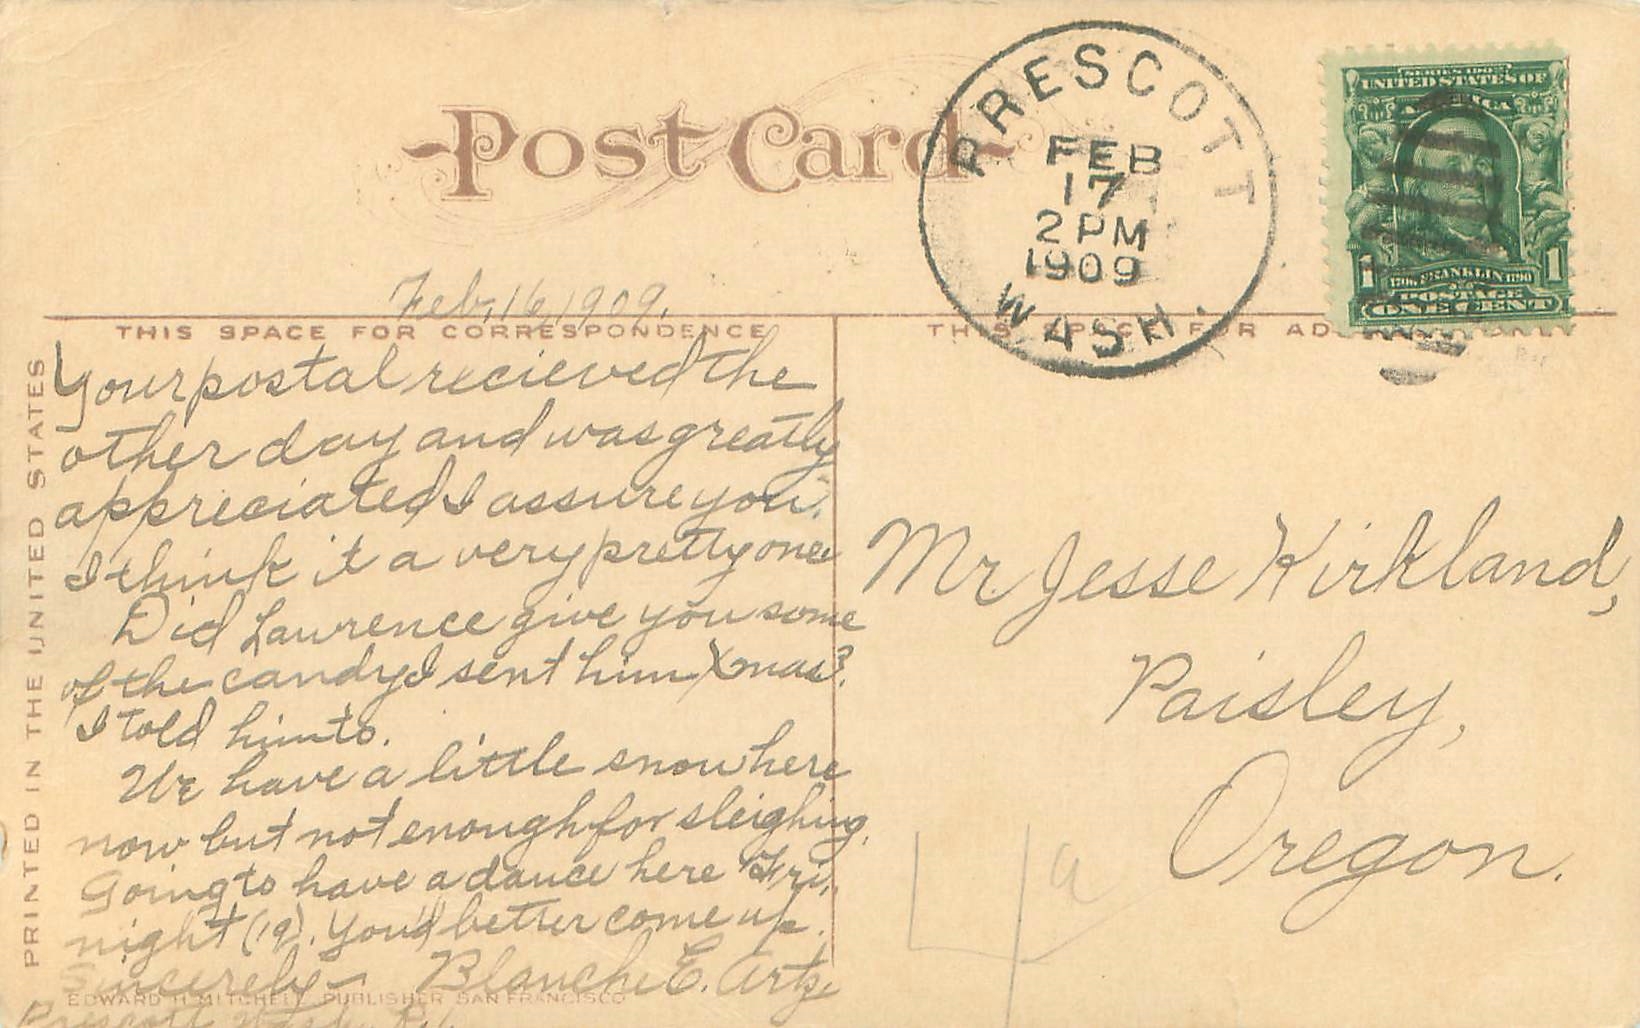 Post Card
PRESCOTT
FEB
17
2 PM
1909
WASH.
SERIES 1902
UNITED STATES OF
AMERICA
1 1
1706 FRANKLIN 1790
POSTAGE
ONE CENT
Feb, 16, 1909.
THIS SPACE FOR CORRESPONDENCE
THIS SPACE FOR AD
PRINTED IN THE UNITED STATES
Your postal recieved the
other day and was greatly
appreciated I assure you.
I think it a very pretty one.
Did Lawrence give you some
of the candy I sent him Xmas?
I told him to.
We have a little snow here
now but not enough for sleighing.
Going to have a dance here Fri.,
night (19). You'd better come up.
Sincerely - Blanche E. Artz.
Prescott, Wash.
EDWARD H. MITCHELL, PUBLISHER SAN FRANCISCO
Mr. Jesse Kirkland,
Paisley,
Oregon.